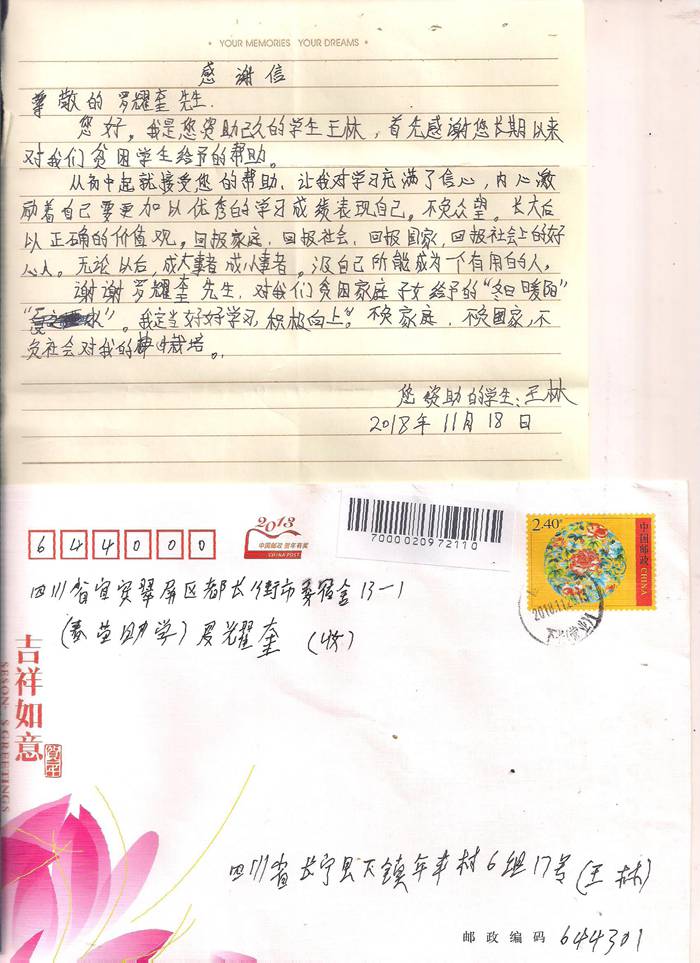 YOUR MEMORIES YOUR DREAMS
感谢信
尊敬的罗耀奎先生.
您好。我是您资助已久的学生王林,首先感谢您长期以来
对我们贫困学生给予的帮助。
从初中起就接受您的帮助、让我对学习充满了信心,内心激
励着自己要更加以优秀的学习成绩表现自己。不负众望。长大后
以正确的价值观。回报家庭,回报社会,回报国家,回报社会上的好
心人。无论以后,成大事者成小事者。汲自己所能成为一个有用的人。
谢谢罗耀奎先生,对我们贫困家庭子女给予的“冬日暖阳”
水”。我定当好好学习,积极向上。不负家庭、不负国家,不
负社会对我的栽培。
您资助的学生:王林
2018年11月18日
644000
2013
中国邮政 贺年有奖
CHINA POST
7000020972110
2.40元
中国邮政
CHINA
2018.11.2
四川省宜宾翠屏区都长街市委宿舍13-1
助学)夏耀奎(收)
吉祥如意
SESON'S GREETINGS
贺年
四川省长宁县下镇年丰村6组17号(王林)
邮政编码 644301